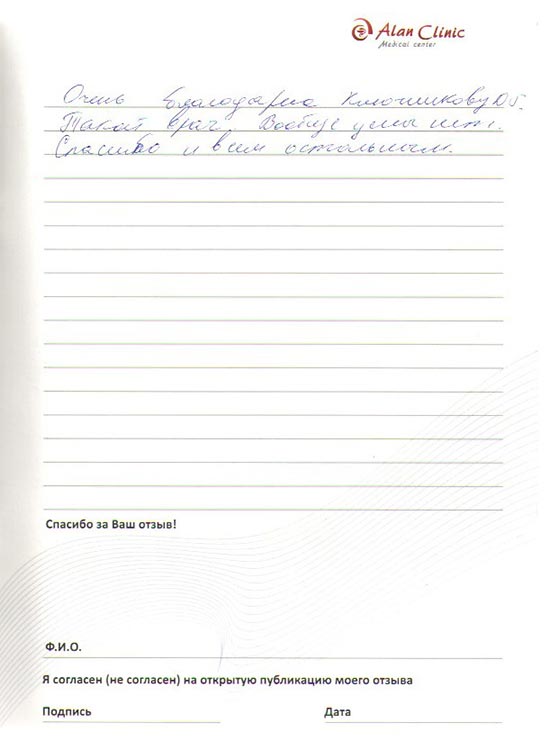 Alan Clinic
Medical center
Очень благодарна Ключникову Ю Г.
Такой врач Вообще цены нет.
Спасибо и всем остальным.
Спасибо за Ваш отзыв!
Ф.И.О.
Я согласен (не согласен) на открытую публикацию моего отзыва
Подпись Дата